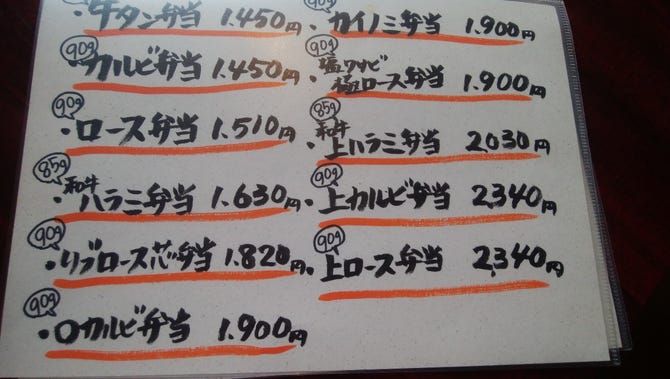 ・牛タン弁当 1.450円
90g
・カルビ弁当 1.450円
90g
・ロース弁当 1.510円
85g
・和牛ハラミ弁当 1.630円
90g
・リブロース芯弁当 1.820円
90g
・ロカルビ弁当 1.900円
・カイノミ弁当 1.900円
90g
・塩ワサビ
極ロース弁当 1.900円
85g
・和牛
上ハラミ弁当 2.030円
90g
・上カルビ弁当 2.340円
90g
・上ロース弁当 2.340円